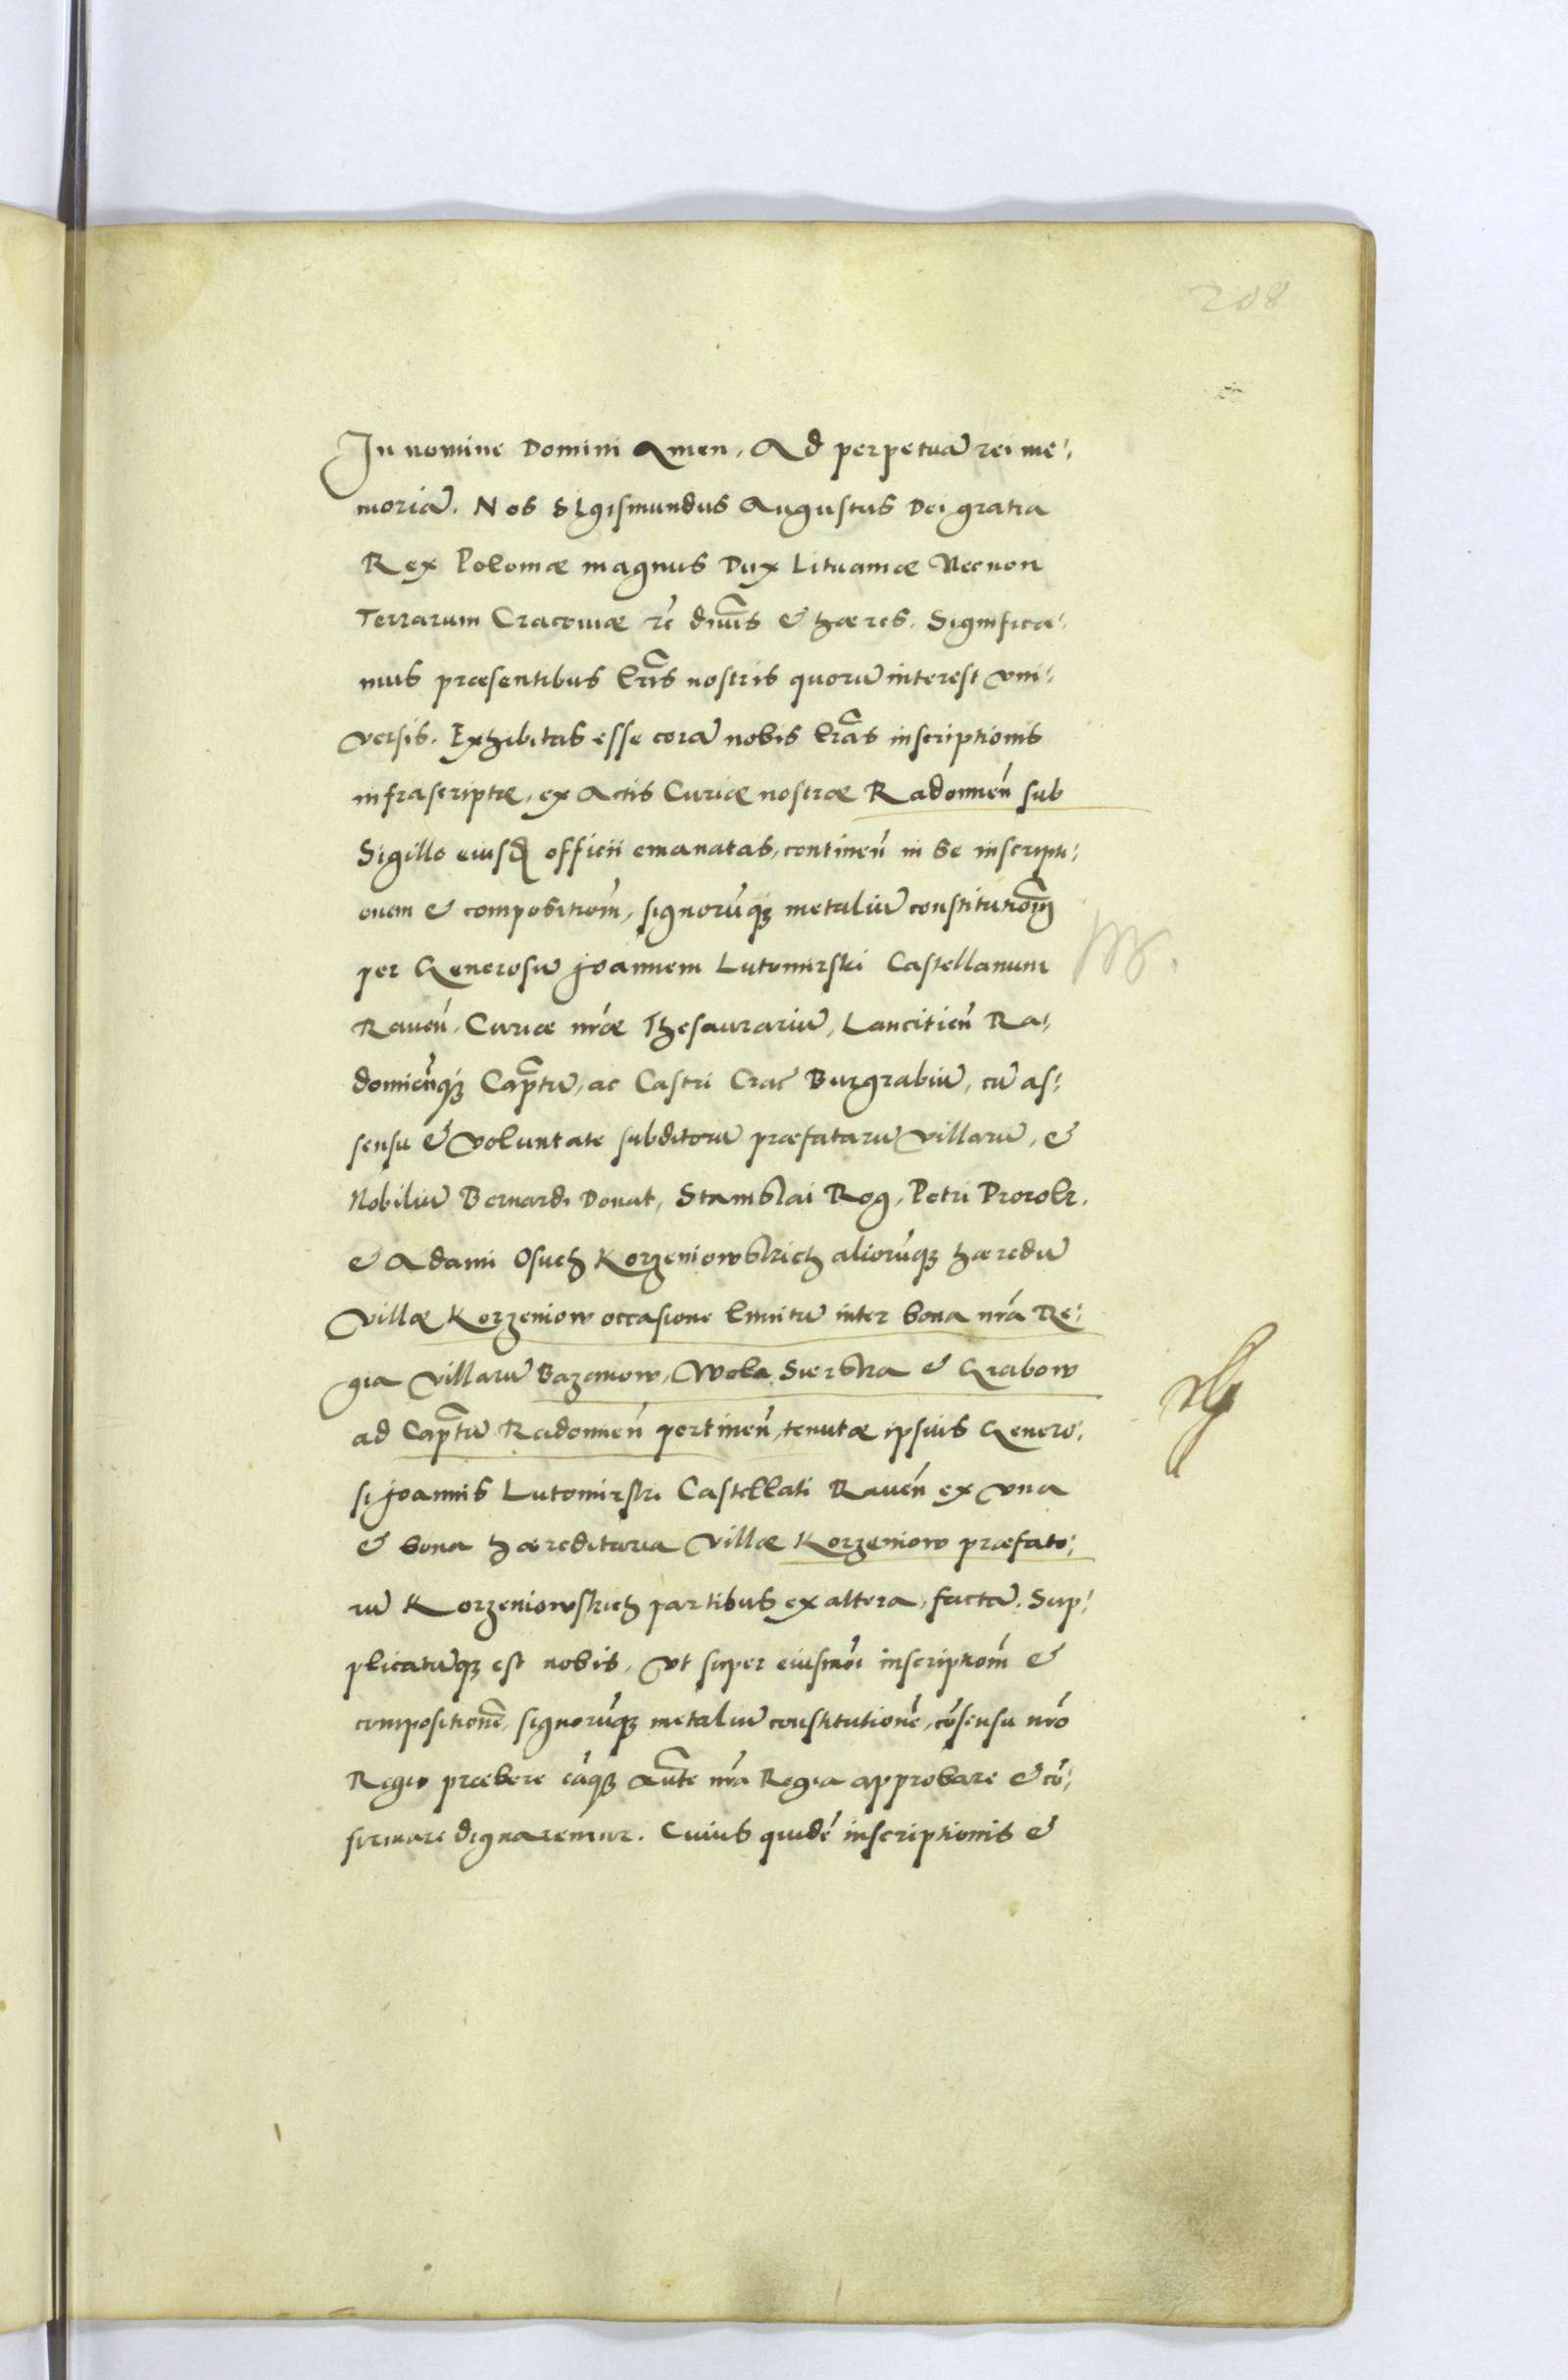 208
In nomine Domini Amen, Ad perpetuã rei me:
moriã. Nos Sigismundus Augustus Dei gratia
Rex Poloniæ magnus Dux Lituaniæ Necnon
Terrarum Cracoviæ &c dnus & hæres. Significa:
mus præsentibus lras nostris quorũ interest vni:
versis. Exhibitas esse corã nobis lras inscriptionis
infrascriptæ, ex Actis Curiæ nostræ Radomieñ sub
Sigillo eiusd officii emanatas, continen̄ in se inscripti:
onem & compositiom̄, signorūqȝ metaliũ constitutiom̄
per Generosũ Joannem Lutomirski Castellanum
Raveñ. Curiæ nr̄æ Thesaurariũ, Lancitieñ Ra:
domieñqȝ Capt̄ũ, ac Castri Crac̄ Burgrabiũ, cũ as:
sensu & voluntate subditorũ præfatarũ villarũ, &
Nobiliũ Bernardi Donat, Stanislai Rog, Petri Prorok,
& Adami Osuch Korzeniowskich aliorūqȝ hæredũ
Villæ Korzeniow occasione limitũ inter bona nr̄a Re:
gia villarũ Bazanow, Wola Sierska & Grabow
ad Capt̄ũ Radomieñ pertineñ, tenutæ ipsius Genero:
si Joannis Lutomirski Castellani Raveñ ex vna
& bona hæreditaria villæ Korzeniow præfato:
rũ Korzeniowskich partibus ex altera, factã. Sup:
plicatũqȝ est nobis, vt super eiusmōi inscriptiom̄ &
compositionē, signorūqȝ metaliũ constitutionē, cōsensũ nr̄o
Regio præbere eāqȝ aut̄te nr̄a Regia approbare & cō:
firmare dignaremur. Cuius quidē inscriptionis &